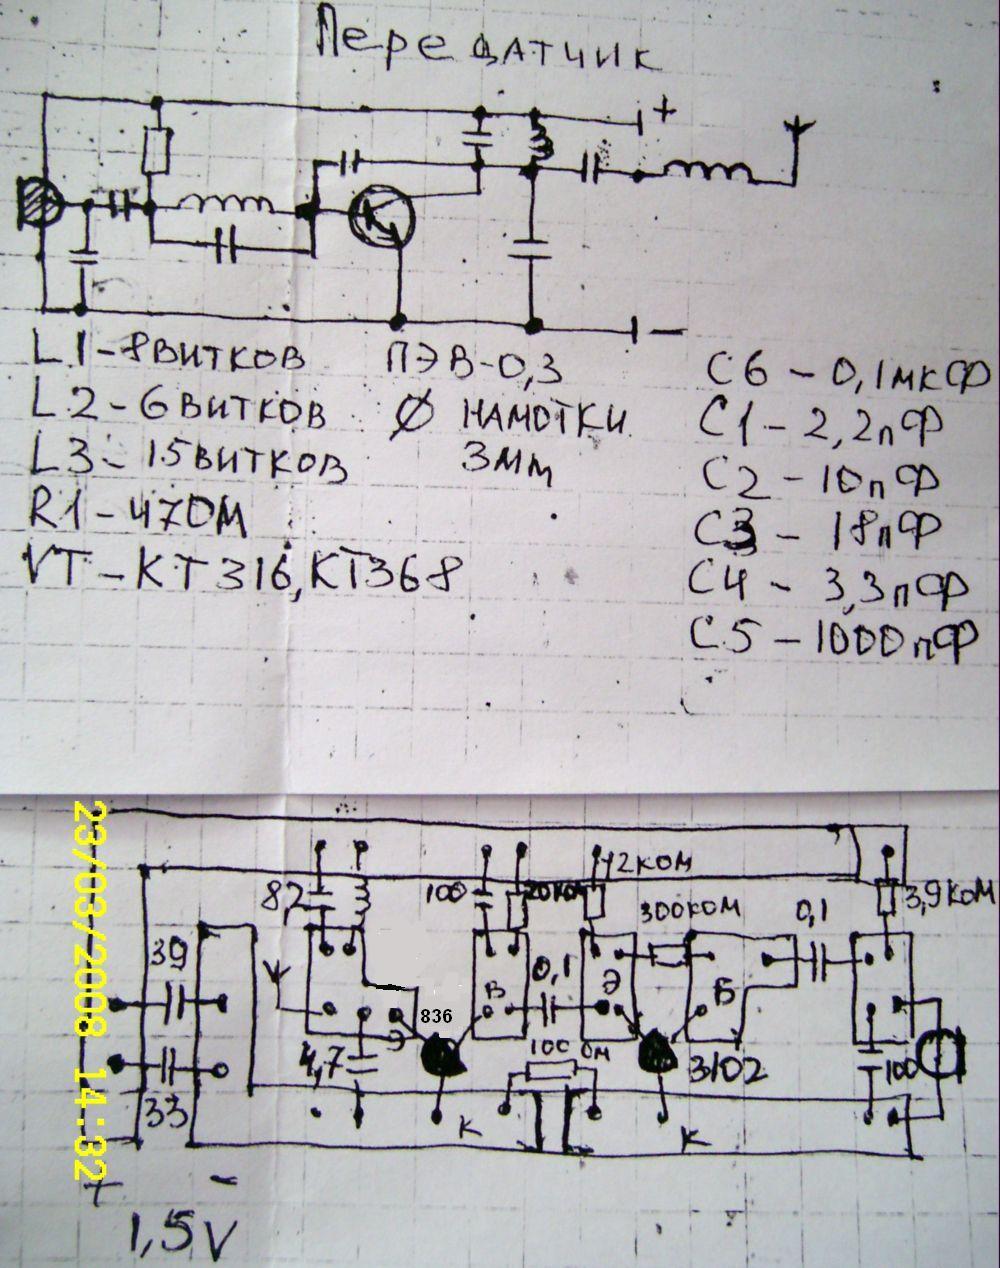 Передатчик
+
−
L1-8витков ПЭВ-0,3 C6 - 0,1мкФ
L2-6витков Ø намотки C1 - 2,2пФ
L3-15витков 3мм C2 - 10пФ
R1-47Ом C3 - 18пФ
VT-КТ316,КТ368 C4 - 3,3пФ
C5 - 1000пФ
23/03/2008 14:32
12ком
8,2 100 20ком 300ком 0,1 3,9ком
39 0,1
В Э Б
836
Э
4,7 100 Ом 3102 100
33
К К
+ −
1,5V